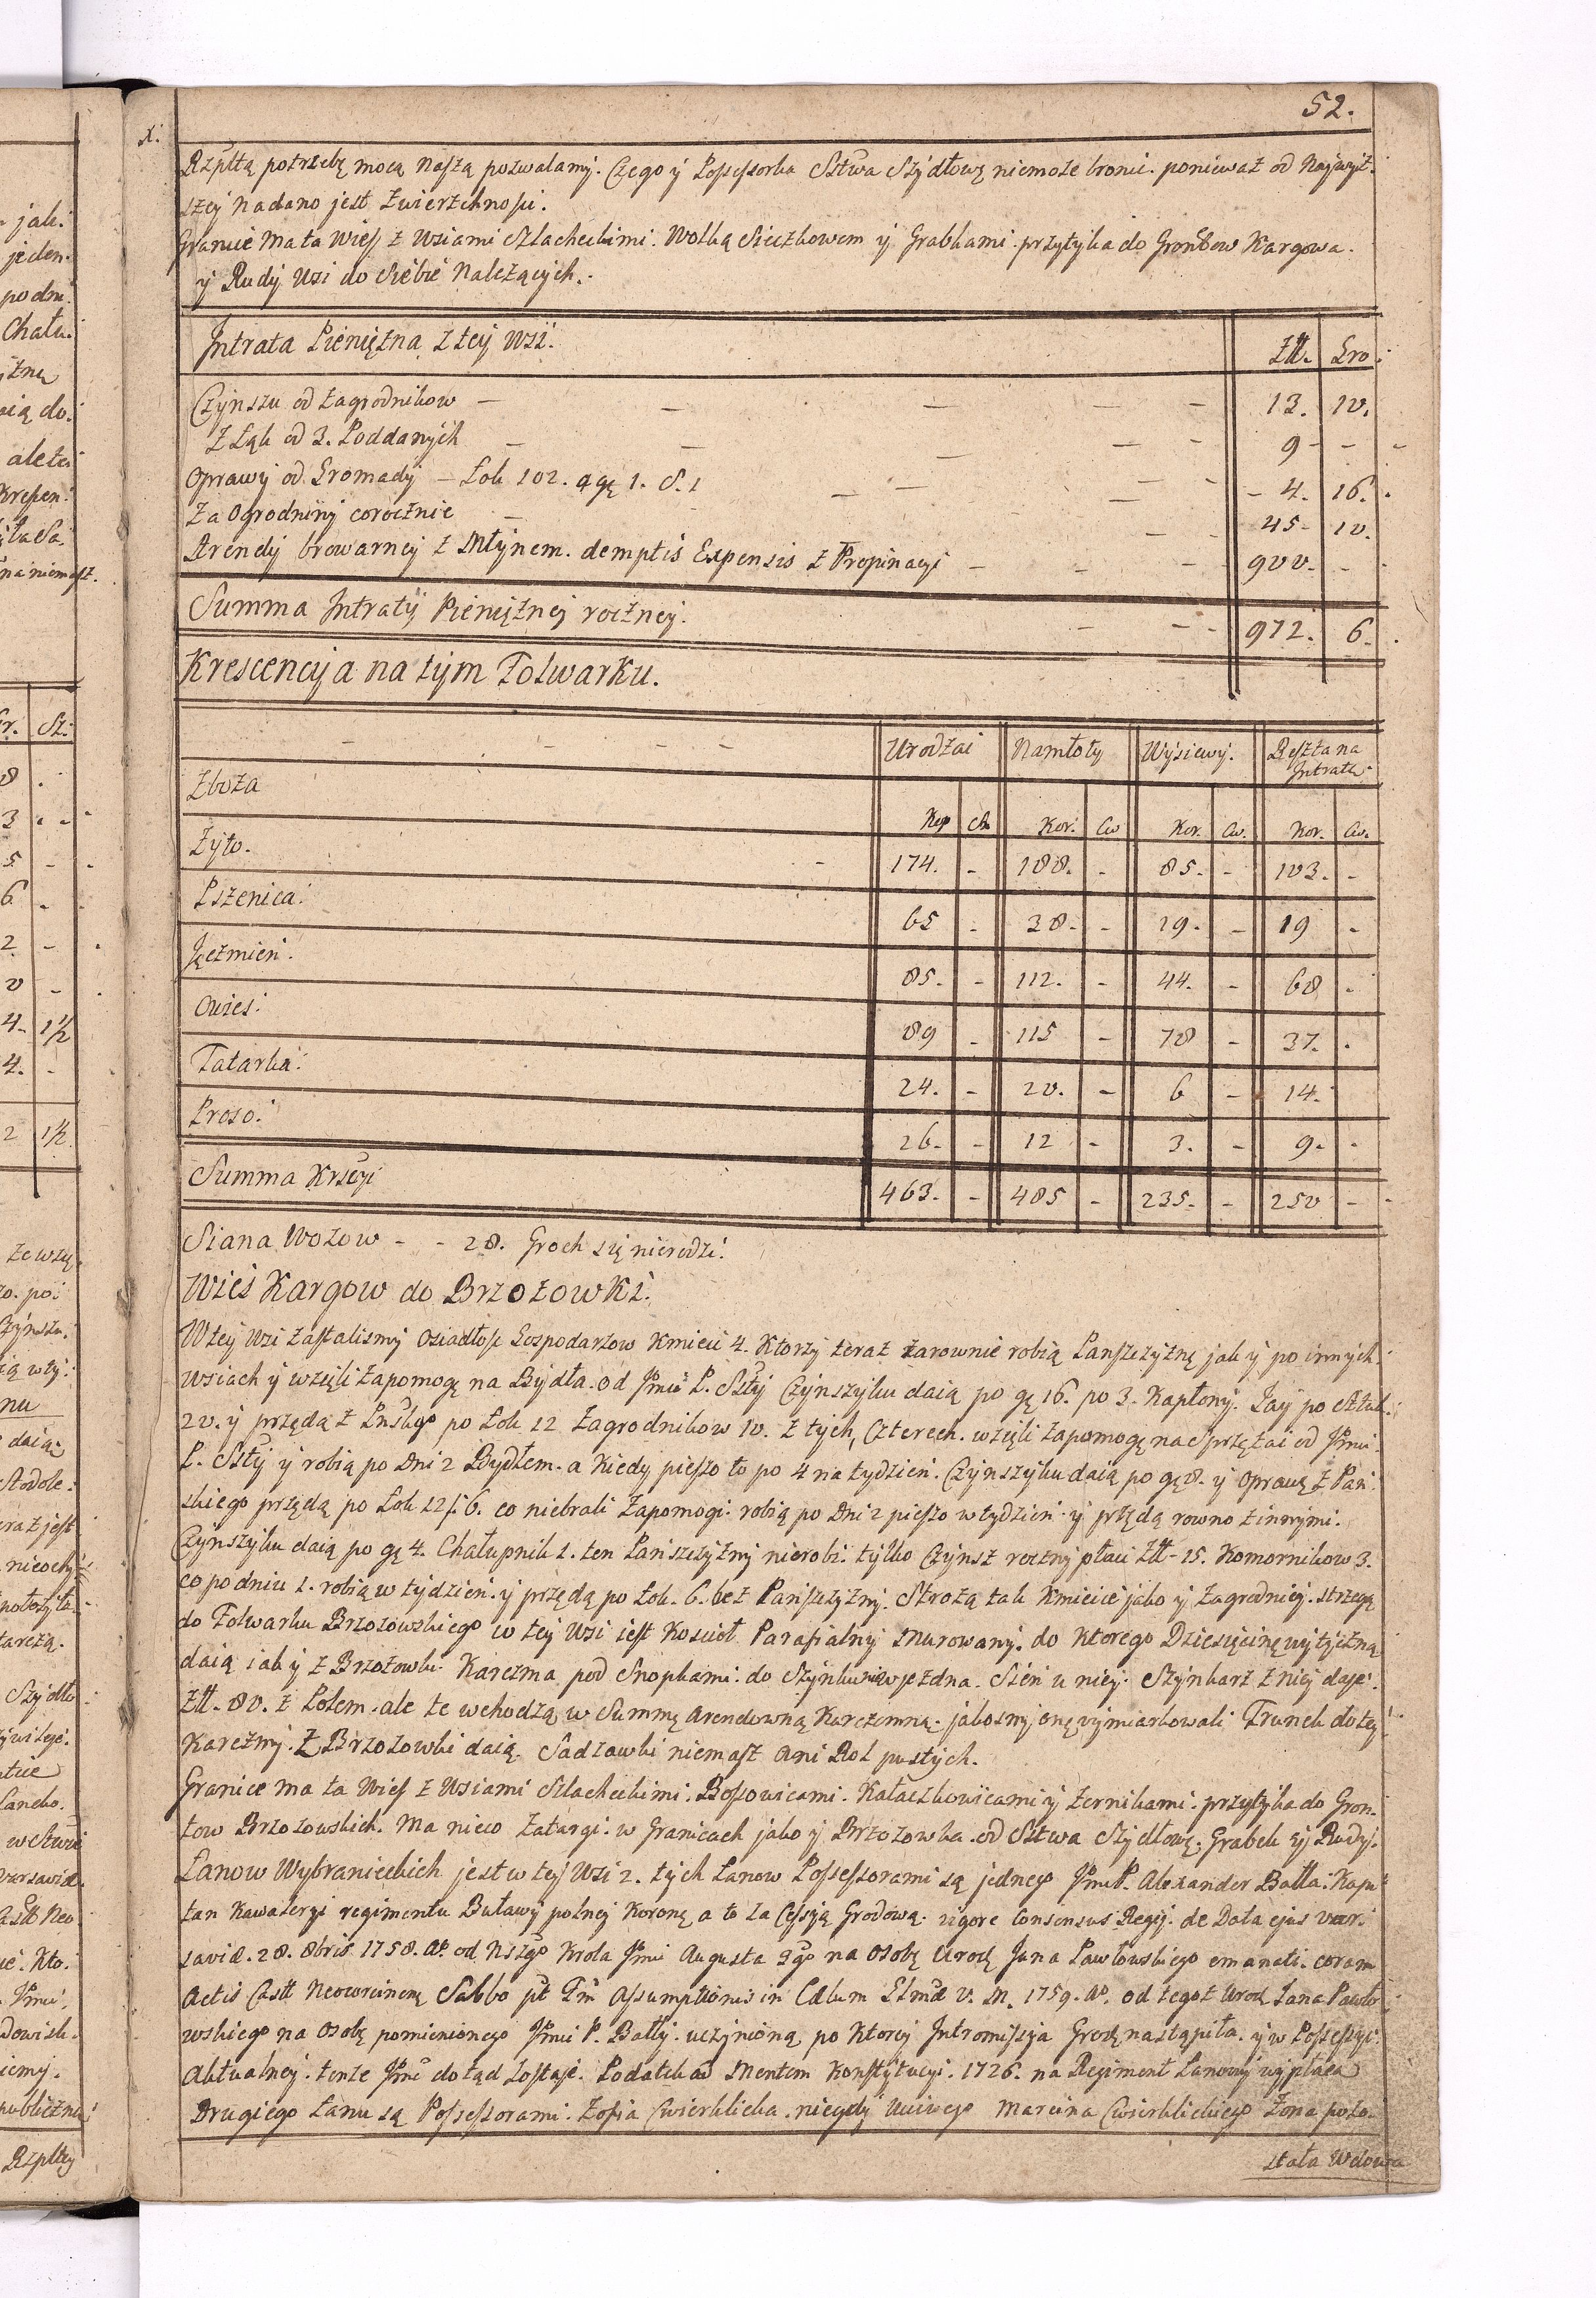 52.
Rzpltą potrzebę mocą naszą pozwalamy. Czego y Possessorka Sstwa Szydłowę niemoże bronić. ponieważ od Naywyż.
szej Nadano jest Zwierzchności.
Granice Ma ta Wieś z Wsiami Szlacheckimi. Wolką Sieczkowem y Grabkami. przytyka do Grontow Kargowa.
y Rudy Wsi do siebie Należących.
Intrata Pieniężna z tey Wsi.
Złł. Gro:
Czynszu od Zagrodnikow — 13. 10.
Z Łąk od 3. Poddanych — 9 -
Oprawy od Gromady — Łok 102. a gę 1. S. 1 - 4. 16.
Za Ogrodniny corocznie — 45 - 10.
Arendy browarney z Młynem. demptis Expensis z Propinacyi — 900. -
Summa Intraty Pieniężney roczney. 972. 6.
Krescencyja na tym Folwarku.
Urodzai Namłoty Wysiewy. Reszta na
Intratę
Zboża
Kop Ch Kor. Cw Kor. Cw. Kor. Cw.
Zyto. 174. - 188. - 85. - 103. -
Pszenica: 65 - 38. - 19. - 19 -
Jęczmień. 85. - 112. - 44. - 68 -
Owies: 89 - 115 - 78 - 37. .
Tatarka: 24. - 20. - 6 - 14.
Proso: 26. - 12 - 3. - 9. -
Summa Krscyi 463. - 485 - 235. - 250 -
Siana Wozow - - 28. Groch się nierodzi.
Wieś Kargow do Brzozowki.
W tey Wsi zastalismy Osiadłości Gospodarzow Kmieci 4. Ktorzy teraz zarownie robią Panszczyznę jak y po innych
Wsiach y wzięli zapomogę na Bydła. od Jmci P. Ssty Czynszyku daią po gę 16. po 3. Kapłony. Jay po sztuk.
20. y przędą z Pnskgo po Łok 12 Zagrodnikow 10. Z tych, Czterech. wzięli zapomogę na Sprzężai od Jmci
P. Ssty y robią po Dni 2 Bydłem. a Kiedy pieszo to po 4 na tydzień. Czynszyku daią po gę 8. y Oprawę z Pań
skiego przędą po Łok 12 /: 6. co niebrali Zapomogi: robią po Dni 2 pieszo w tydzień y przędą rowno z innymi.
Czynszyku daią po gę 4. Chałupnik 1. ten Panszczyzny nierobi. tylko Czynsz roczny płaci Złł - 15. Komornikow 3.
co po dniu 1. robią w tydzień. y przędą po Łok. 6. bez Panszczyzny. Strożą tak Kmiecie jako y Zagrodnicy. strzegą
do Folwarku Brzozowskiego w tey Wsi iest Kosciół Parafialny Murowany. do Ktorego Dziesięcinę wytyczną
daią iak y z Brzozowki Karczma pod Snopkami. do Szynku niewjezdna. Sień u niey. Szynkarz z niey daje.
Złł. 80. z Polem. ale te wchodzą w Summę Arendowną Karczemną. jakosmy onę wymiarkowali Trunek do tey
Karczmy. Z Brzozowki daią. Sadzawki niemasz Ani Rol pustych.
Granice ma ta Wieś z Wsiami Szlacheckimi. Bossowicami. Kałaczkowicami y Zernikami. przytyka do Gron-
tow Brzozowskich. Ma nieco Zatargi. w Granicach jako y Brzozowka. od Sstwa Szydłowę. Grabek y Rudy.
Łanow Wybranieckich jest w tey Wsi 2. tych Łanow Possessorami są jednego JmcP. Alexander Batta. Kapi
tan Kawaleryi regimentu Buławy polney Koronę a to za Cessyją Grodową. vigore Consensus Regij. de Data ejus var
savię. 28. 8bris 1758. Ao. od Nszgo Krola Jmci Augusta 3go na Osobę Urod Jana Pawłowskiego emanati. coram
Actis Castr Neocorcinenę Sabbo pt Fm Assumptionis in Cælum Bmæ V. M. 1759. Ao. od tegoż Urod Jana Pawło
wskiego na Osobę pomienionego Jmci P. Batty. uczynioną po Ktorey Intromissyja Grodę nastąpiła. y w Possessyi
Aktualney. tenże Jmc dotąd Zostaje. Podatek ad Mentem Konstytucyi. 1726. na Regiment Łanowy wypłaca
Drugiego Łanu są Possessorami. Zofia Cwierklicka. niegdy Uczciwego Marcina Cwierklickiego Żona pozo-
stała Wdowa